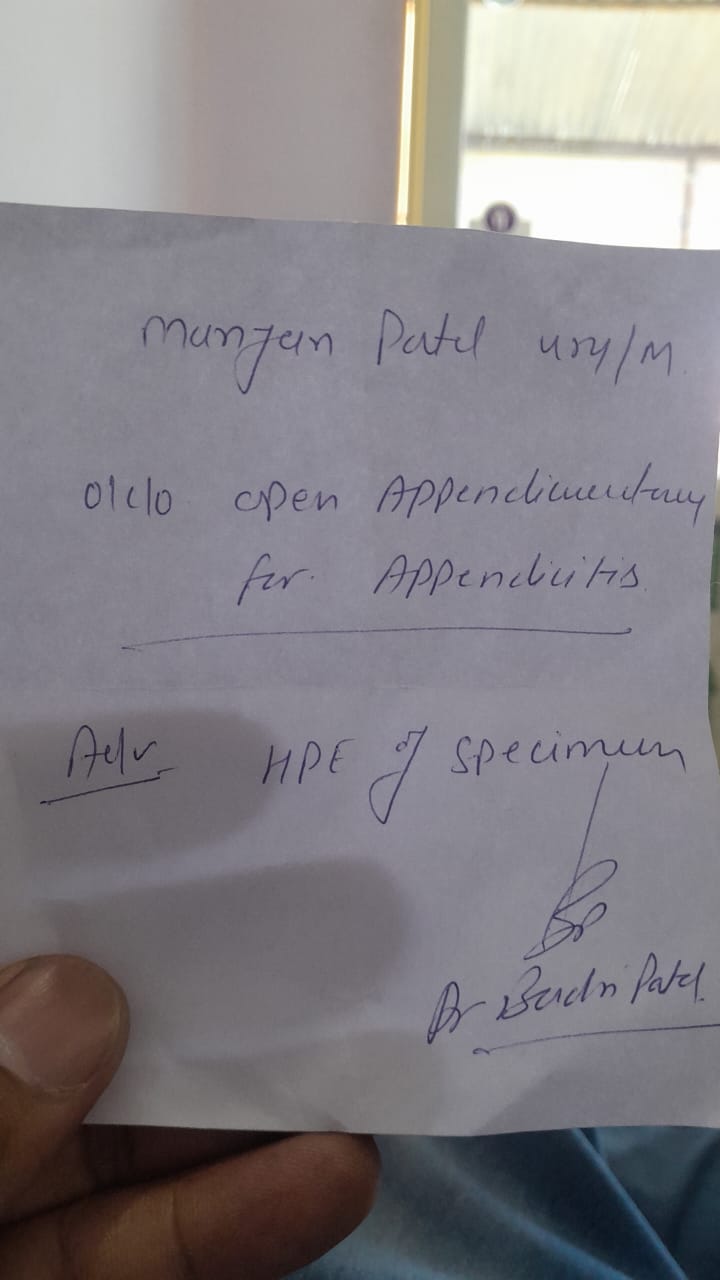 Manjan Patel 45y/M
open Appendicectomy
for. Appendicitis.
Adv HPE of specimen
Dr Badri Patel